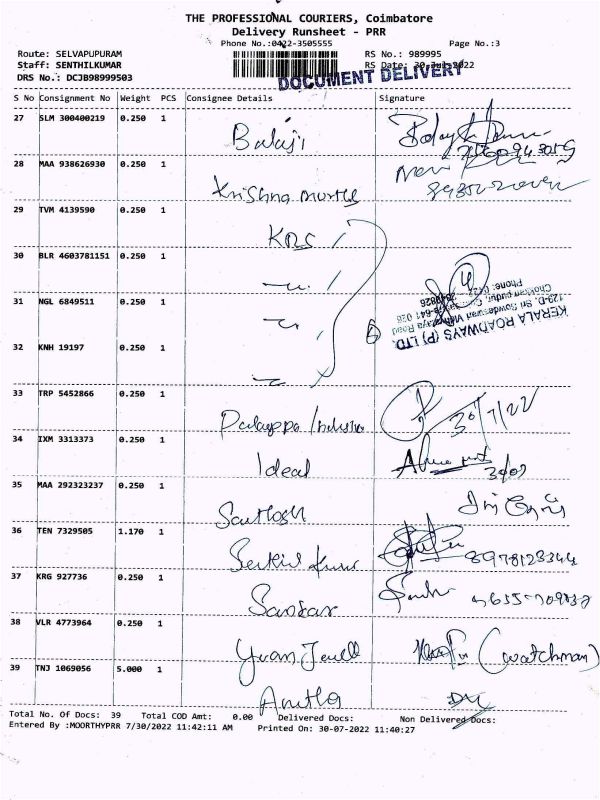 THE PROFESSIONAL COURIERS, Coimbatore
Delivery Runsheet - PRR
Phone No.:0422-3505555 Page No.:3
Route: SELVAPUPURAM RS No.: 989995
Staff: SENTHILKUMAR RS Date: 30-Jul-2022
DRS No.: DCJB98999503
DOCUMENT DELIVERY
S No Consignment No Weight PCS Consignee Details Signature
27 SLM 300400219 0.250 1 Balaji
28 MAA 938626930 0.250 1 Krishna
29 TVM 4139590 0.250 1 KRS
30 BLR 4603781151 0.250 1
31 NGL 6849511 0.250 1
KERALA ROADWAYS (P) LTD.
129-D, Sri Sowdeswari Vidhyalaya Road
Phone: 0422
32 KNH 19197 0.250 1
33 TRP 5452866 0.250 1 30/7/22
34 IXM 3313373 0.250 1 Ideal
35 MAA 292323237 0.250 1 Santhosh
36 TEN 7329505 1.170 1 8978123344
37 KRG 927736 0.250 1 Sankar
38 VLR 4773964 0.250 1 Yuan Jewell (watchman)
39 TNJ 1069056 5.000 1 Anitha
Total No. Of Docs: 39 Total COD Amt: 0.00 Delivered Docs: Non Delivered Docs:
Entered By :MOORTHYPRR 7/30/2022 11:42:11 AM Printed On: 30-07-2022 11:40:27